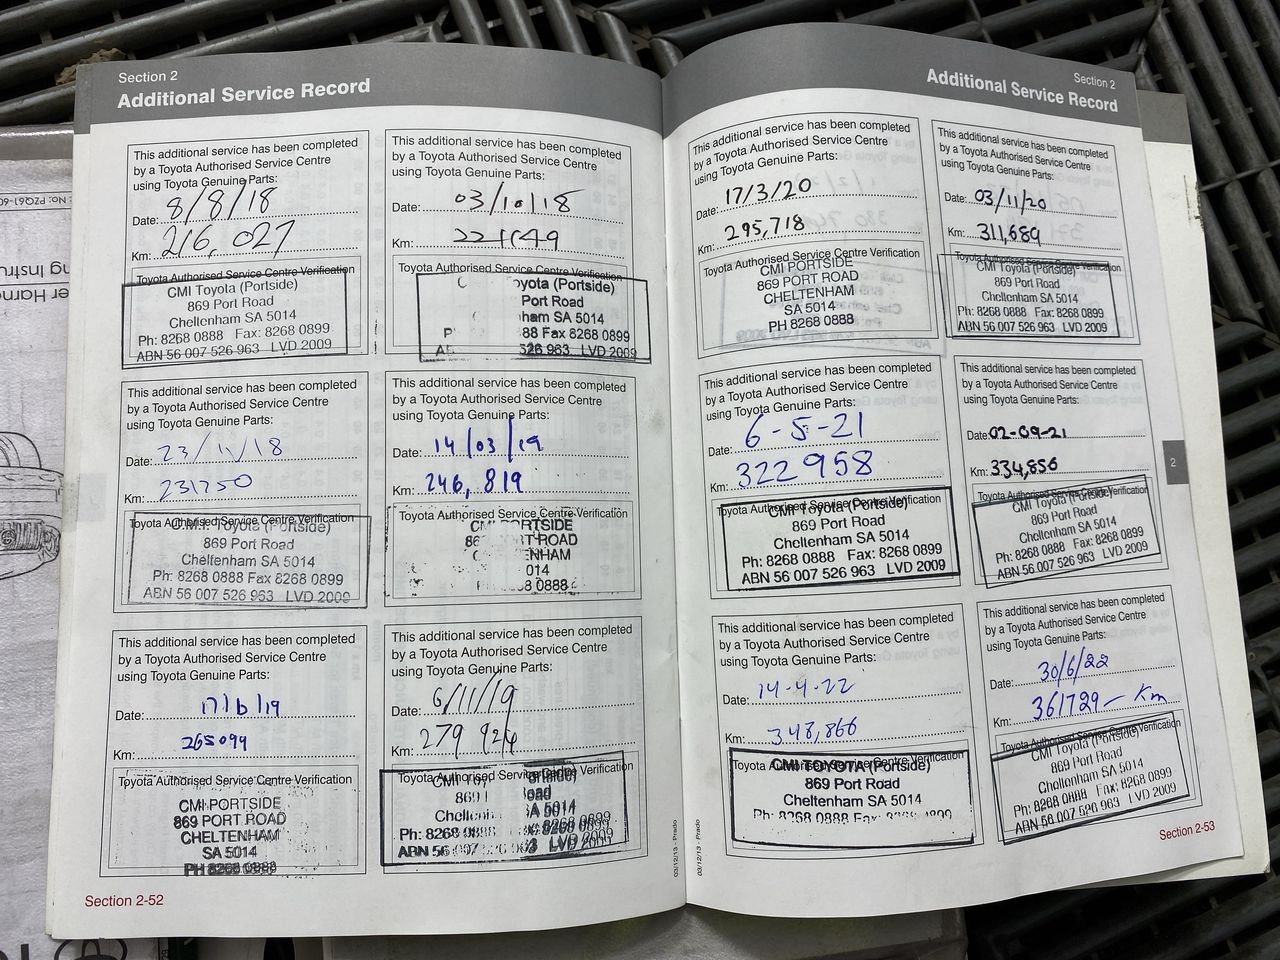 Section 2
Additional Service Record
This additional service has been completed
by a Toyota Authorised Service Centre
using Toyota Genuine Parts:
Date: 8/8/18
Km: 216,027
Toyota Authorised Service Centre Verification
CMI Toyota (Portside)
869 Port Road
Cheltenham SA 5014
Ph: 8268 0888 Fax: 8268 0899
ABN 56 007 526 963 LVD 2009
This additional service has been completed
by a Toyota Authorised Service Centre
using Toyota Genuine Parts:
Date: 03/10/18
Km:
Toyota Authorised Service Centre Verification
C oyota (Portside)
Port Road
ham SA 5014
P 88 Fax 8268 0899
AB 526 963 LVD 2009
This additional service has been completed
by a Toyota Authorised Service Centre
using Toyota Genuine Parts:
Date: 23/11/18
Km: 231750
Toyota Authorised Service Centre Verification
C.M.I. Toyota (Portside)
869 Port Road
Cheltenham SA 5014
Ph: 8268 0888 Fax 8268 0899
ABN 56 007 526 963 LVD 2009
This additional service has been completed
by a Toyota Authorised Service Centre
using Toyota Genuine Parts:
Date: 14/03/19
Km: 246,819
Toyota Authorised Service Centre Verification
CMI PORTSIDE
RT ROAD
ENHAM
014
8 0888
This additional service has been completed
by a Toyota Authorised Service Centre
using Toyota Genuine Parts:
Date: 17/6/19
Km: 265099
Toyota Authorised Service Centre Verification
CMI PORTSIDE
869 PORT ROAD
CHELTENHAM
SA 5014
PH 8268 0888
This additional service has been completed
by a Toyota Authorised Service Centre
using Toyota Genuine Parts:
Date: 6/11/19
Km: 279 924
Toyota Authorised Service Centre Verification
CMI Toy
869
Chelten SA 5014
Ph: 8268 8268 0899
ABN 56 007 526 963 LVD 2009
Section 2-52
03/12/13 - Prado
Section 2
Additional Service Record
This additional service has been completed
by a Toyota Authorised Service Centre
using Toyota Genuine Parts:
Date: 17/3/20
Km: 295,718
Toyota Authorised Service Centre Verification
CMI PORTSIDE
869 PORT ROAD
CHELTENHAM
SA 5014
PH 8268 0888
This additional service has been completed
by a Toyota Authorised Service Centre
using Toyota Genuine Parts:
Date: 03/11/20
Km: 311,689
Toyota Authorised Service Centre Verification
CMI Toyota (Portside)
869 Port Road
Cheltenham SA 5014
Ph: 8268 0888 Fax: 8268 0899
ABN 56 007 526 963 LVD 2009
This additional service has been completed
by a Toyota Authorised Service Centre
using Toyota Genuine Parts:
Date: 6-5-21
Km: 322958
Toyota Authorised Service Centre Verification
CMI Toyota (Portside)
869 Port Road
Cheltenham SA 5014
Ph: 8268 0888 Fax: 8268 0899
ABN 56 007 526 963 LVD 2009
This additional service has been completed
by a Toyota Authorised Service Centre
using Toyota Genuine Parts:
Date: 02-09-21
Km: 334,856
Toyota Authorised Service Centre Verification
CMI Toyota (Portside)
869 Port Road
Cheltenham SA 5014
Ph: 8268 0888 Fax: 8268 0899
ABN 56 007 526 963 LVD 2009
2
This additional service has been completed
by a Toyota Authorised Service Centre
using Toyota Genuine Parts:
Date: 14-4-22
Km: 348,866
Toyota Authorised Service Centre Verification
CMI TOYOTA (Portside)
869 Port Road
Cheltenham SA 5014
Ph: 8268 0888 Fax: 8268 0899
This additional service has been completed
by a Toyota Authorised Service Centre
using Toyota Genuine Parts:
Date: 30/6/22
Km: 361729 - Km
Toyota Authorised Service Centre Verification
CMI Toyota (Portside)
869 Port Road
Cheltenham SA 5014
Ph: 8268 0888 Fax: 8268 0899
ABN 56 007 526 963 LVD 2009
03/12/13 - Prado
Section 2-53